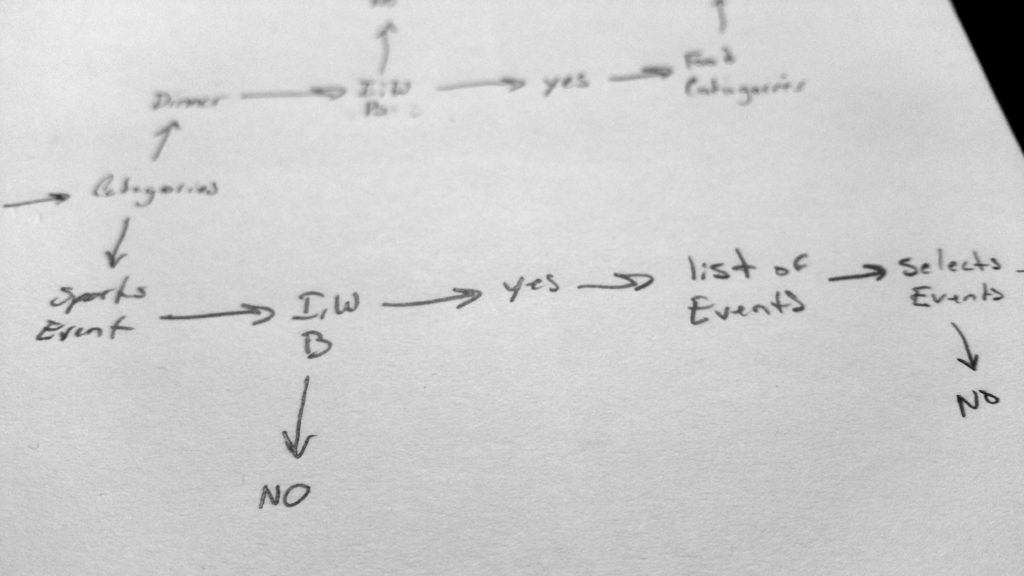 Dinner
I, W
B
yes
Food
Catagories
Catagories
Sports
Event
I, W
B
NO
yes
list of
Events
Selects
Events
NO